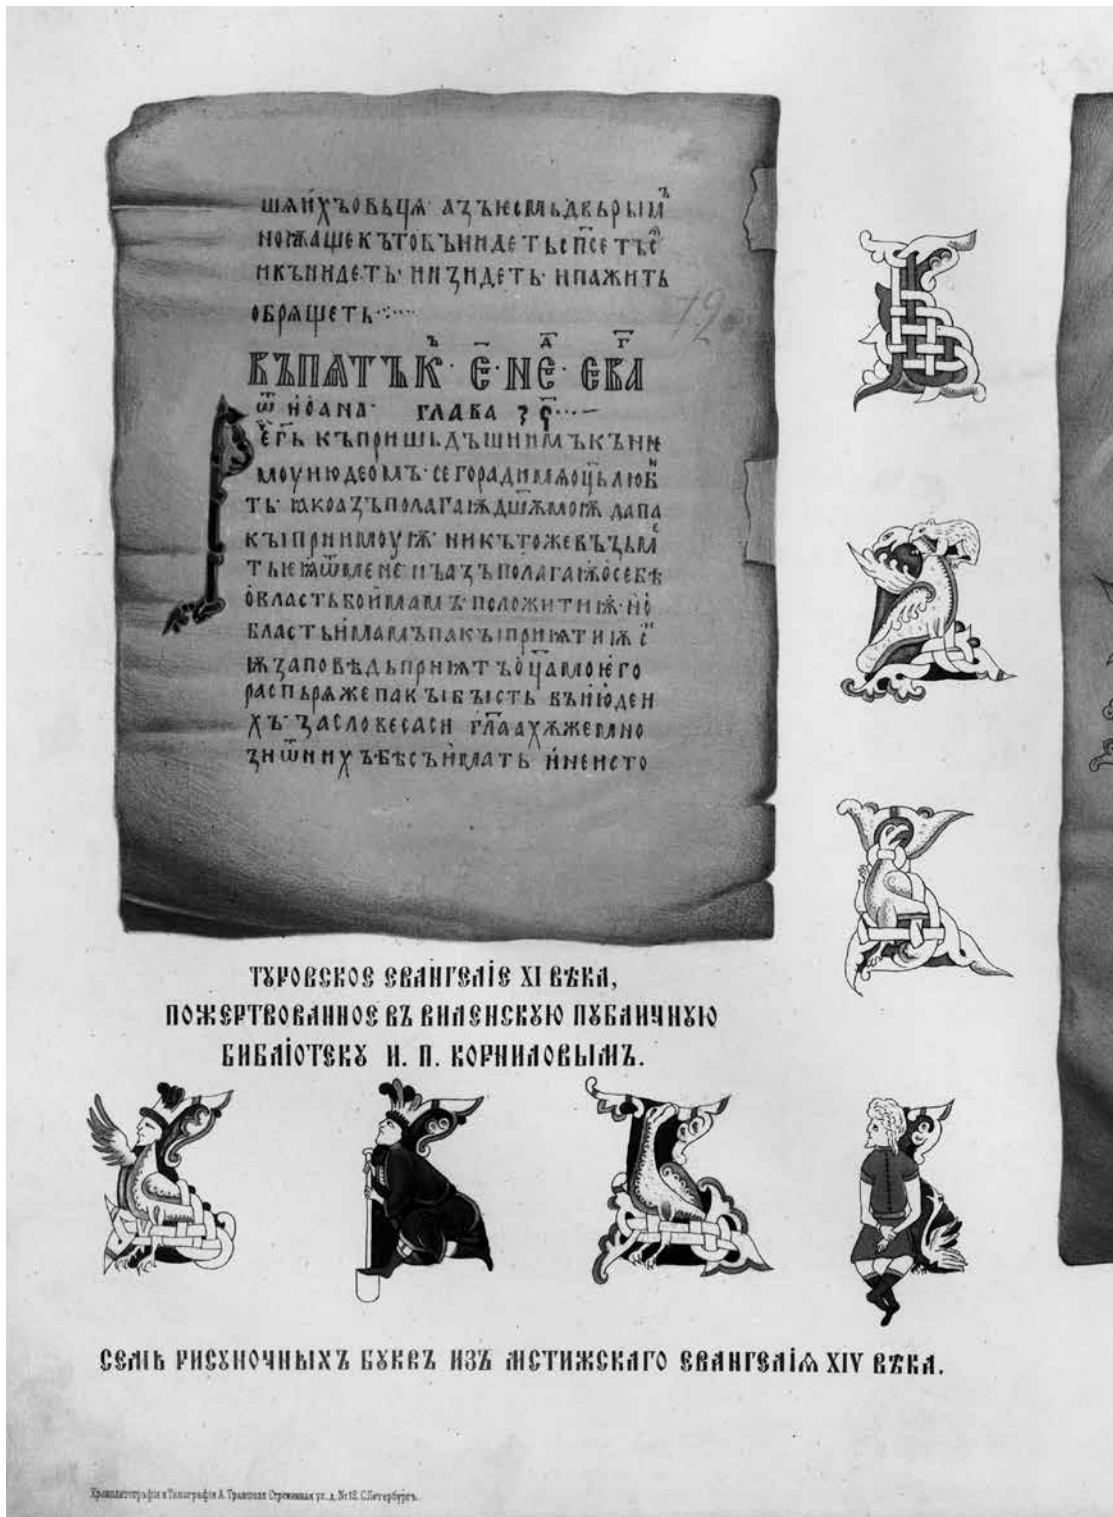 шѧи҆хъовьцѧ· азъѥсмьдвьрьімъ
ноѭащекътовънидетьсп҃сетьсѧ
ивънидеть· иизидеть· ипажить
обрѧщеть·:····
ВЪПѦТЪК· Е҃· НЕД҃· ЕВГЛ
ѿ и҆о҆ана· глава
рече г҃ь къпришьдъшиимъкъне
моуиюдеомъ· сегорадимѧоц҃ьлюби
ть· ꙗкоазъполагаѭдш҃ѫмоѭ дапа
къıприимоуѭ· никътожевъзьме
тьеѩѿмене нъазъполагаѭ҆осебѣ
о҆властьбои҆мамъ· положитиѭ· ио҆
бластьи҆мамъпакъıприѩтиѭ си
ѭзаповѣдьприѩтъо҆ц҃амоѥ҆го
распьрѧжепакъıбъıсть въию҆деи
хъ· засловесаси гл҃аахѫжемно
зиѿнихъ·бѣсъи҆мать и҆неисто
79
ТУРОВСКОЕ ЕВАНГЕЛІЕ XI ВѢКА,
ПОЖЕРТВОВАННОЕ ВЪ ВИЛЕНСКУЮ ПУБЛИЧНУЮ
БИБЛІОТЕКУ И. П. КОРНИЛОВЫМЪ.
СЕМЬ РИСУНОЧНЫХЪ БУКВЪ ИЗЪ МСТИЖСКАГО ЕВАНГЕЛІЯ XIV ВѢКА.
Хромолитографія и Типографія А. Траншель Стремянная ул. д. № 12. С.Петербургъ.